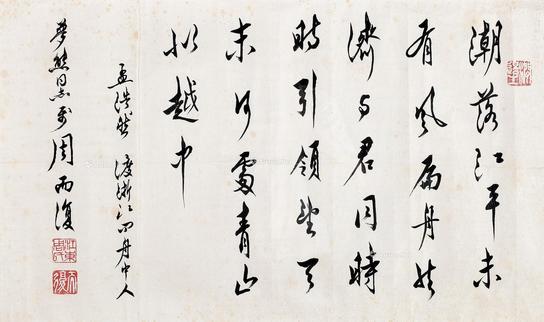 潮落江平未
有风扁舟共
濟与君同時
時引領望天
末何處青山
似越中
孟浩然 渡浙江问舟中人
夢熊同志 周而復